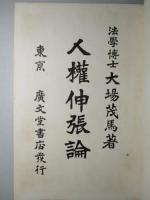 法學博士 大場茂馬著
人權伸張論
東京 廣文堂書店發行